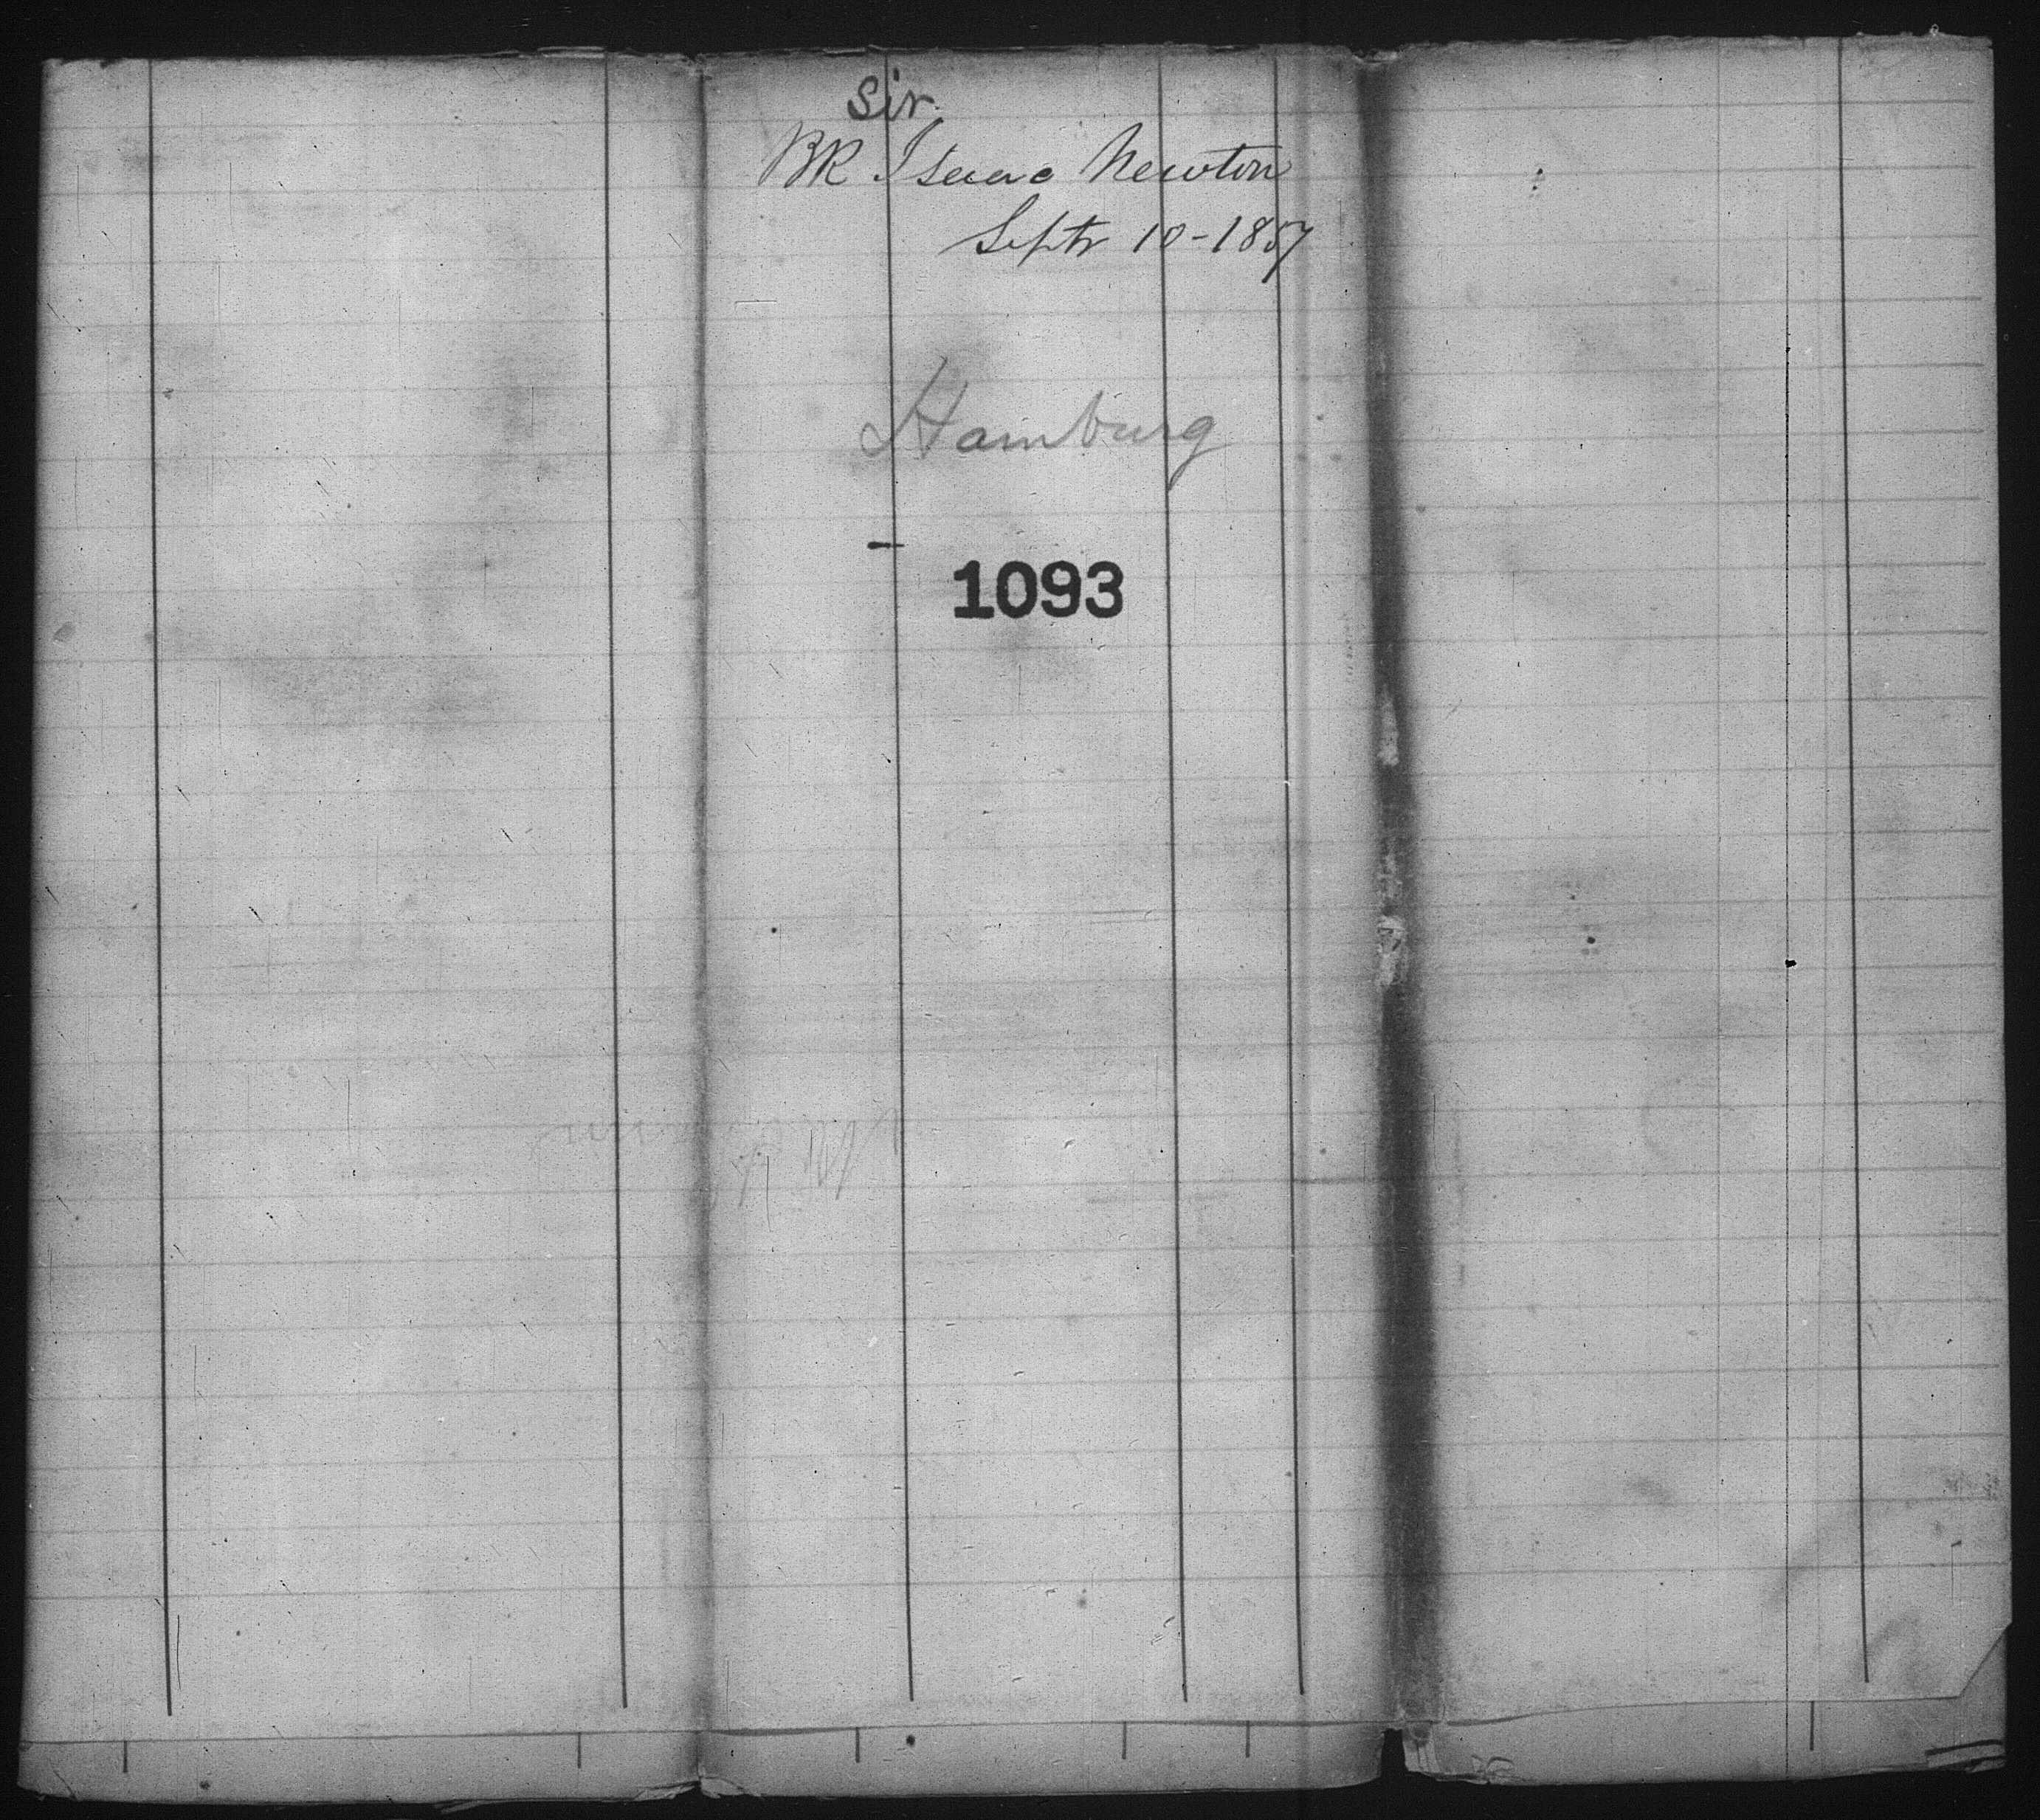 Sir
BK Isaac Newton
Septr 10-1857
Hamburg
1093